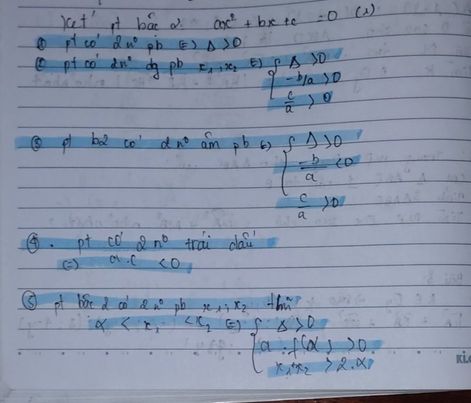 Xét pt bậc 2 ax² + bx + c = 0 (1)
① pt có 2 n⁰ pb (=) Δ > 0
② pt có 2n⁰ dg pb x₁, x₂ (=) { Δ > 0
-b/a > 0
c/a > 0
③ pt b2 có 2 n⁰ âm pb (=) { Δ > 0
-b/a < 0
c/a > 0
④. pt có 2 n⁰ trái dấu
(=) a.c < 0
⑤ pt bậc 2 có 2 n⁰ pb x₁, x₂ thỏa
α < x₁ < x₂ (=) { Δ > 0
a . f(α) > 0
x₁+x₂ > 2.α